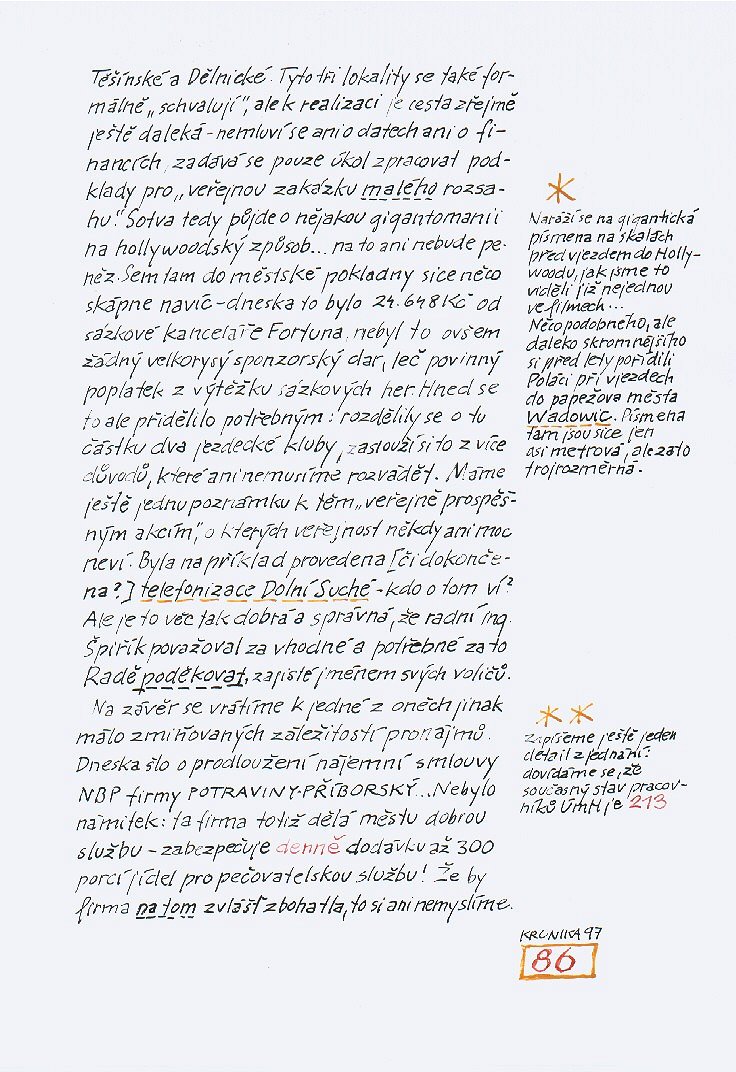 Těšínské a Dělnické. Tyto tři lokality se také for-
málně „schvalují", ale k realizaci je cesta zřejmě
ještě daleká - nemluví se ani o datech ani o fi-
nancích, zadává se pouze úkol zpracovat pod-
klady pro „veřejnou zakázku malého rozsa-
hu". Sotva tedy půjde o nějakou gigantomanii
na hollywoodský způsob... na to ani nebude pe-
něz. Sem tam do městské pokladny sice něco
skápne navíc - dneska to bylo 24.648 Kč od
sázkové kanceláře Fortuna, nebyl to ovšem
žádný velkorysý sponzorský dar, leč povinný
poplatek z výtěžku sázkových her. Hned se
to ale přidělilo potřebným: rozdělily se o tu
částku dva jezdecké kluby, zaslouží si to z více
důvodů, které ani nemusíme rozvádět. Máme
ještě jednu poznámku k těm „veřejně prospěš-
ným akcím", o kterých veřejnost někdy ani moc
neví. Byla na příklad provedena [či dokonče-
na?] telefonizace Dolní Suché - kdo o tom ví?
Ale je to věc tak dobrá a správná, že radní ing.
Špiřík považoval za vhodné a potřebné za to
Radě poděkovat, zajisté jménem svých voličů.
Na závěr se vrátíme k jedné z oněch jinak
málo zmiňovaných záležitostí pronájmů.
Dneska šlo o prodloužení nájemní smlouvy
NBP firmy POTRAVINY-PŘÍBORSKÝ... Nebylo
námitek: ta firma totiž dělá městu dobrou
službu - zabezpečuje denně dodávku až 300
porcí jídel pro pečovatelskou službu! Že by
firma na tom zvlášť zbohatla, to si ani nemyslíme.
*
Naráží se na gigantická
písmena na skalách
před vjezdem do Holly-
woodu, jak jsme to
viděli již nejednou
ve filmech...
Něco podobného, ale
daleko skromnějšího
si před lety pořídili
Poláci při vjezdech
do papežova města
Wadowic. Písmena
tam jsou sice jen
asi metrová, ale zato
trojrozměrná.
* *
Zapíšeme ještě jeden
detail z jednání:
dovídáme se, že
současný stav pracov-
níků ÚMH je 213
KRONIKA 97
86